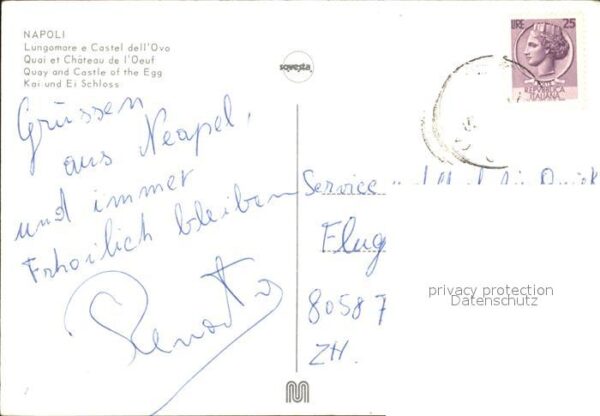 NAPOLI
Lungomare e Castel dell'Ovo
Quai et Château de l'Oeuf
Quay and Castle of the Egg
Kai und Ei Schloss
savesta
LIRE 25
REPVBBLICA
ITALIANA
Grüssen
aus Neapel,
und immer
Erhoilich bleiben
Renato
Service
Flug
80587
ZH.
privacy protection
Datenschutz